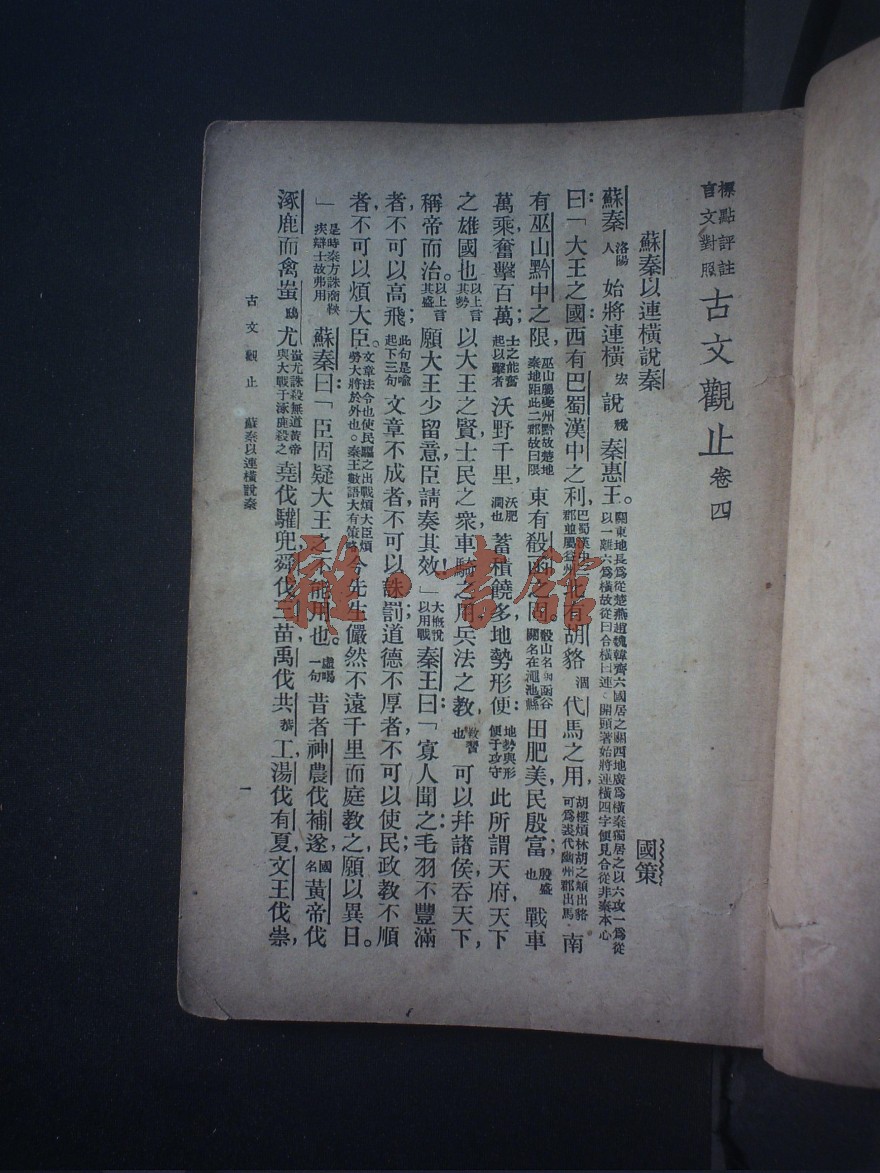 標點評註
言文對照
古文觀止 卷四
蘇秦以連橫說秦 國策
蘇秦洛陽人始將連橫宏說稅秦惠王。關東地長爲從楚燕趙魏韓齊六國居之關西地廣爲橫秦獨居之以六攻一爲從以一離六爲橫故從曰合橫曰連○開頭著始將連橫四字便見合從非秦本心
曰：「大王之國西有巴蜀漢中之利，巴蜀漢中三郡並屬益州北有胡貉涸代馬之用，胡樓煩林胡之類出貉可爲裘代幽州郡出馬南
有巫山黔中之限，巫山屬夔州黔故楚地秦地距此二郡故曰限東有殽函之固。殽山名函函谷關名在澠池縣田肥美，民殷富；殷盛也戰車
萬乘，奮擊百萬；士之能奮起以擊者沃野千里，沃肥潤也蓄積饒多，地勢形便：地勢與形便于攻守此所謂天府，天下
之雄國也。以上言其勢以大王之賢，士民之衆，車騎之用，兵法之教，教習也可以幷諸侯，吞天下，
稱帝而治。以上言其盛願大王少留意，臣請奏其效！」大槪悅以用戰秦王曰：「寡人聞之：毛羽不豐滿
者，不可以高飛；此句是喩起下三句文章不成者，不可以誅罰；道德不厚者，不可以使民；政教不順
者，不可以煩大臣。文章法令也使民驅之出戰煩大臣煩勞大將於外也。秦王數語大有策略今先生儼然不遠千里而庭教之，願以異日。
」是時秦方誅商鞅疾辯士故弗用蘇秦曰：「臣固疑大王之不能用也。虛喝一句昔者神農伐補遂，國名黃帝伐
涿鹿而禽蚩鴟尤，蚩尤誅殺無道黃帝與大戰于涿鹿殺之堯伐驩兜，舜伐三苗，禹伐共恭工，湯伐有夏，文王伐崇，
古文觀止 蘇秦以連橫說秦 一
雜·書館